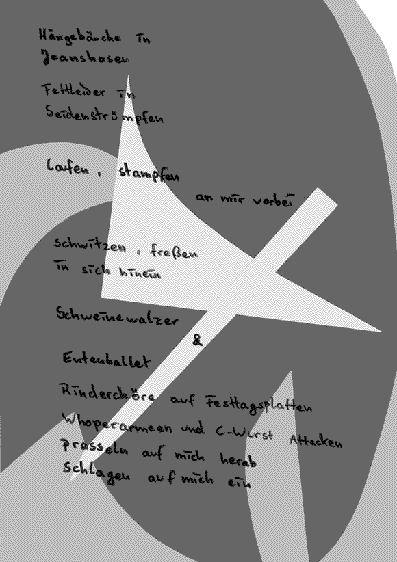 Hängebäuche in
Jeanshosen
Fettleiber in
Seidenstrümpfen
laufen, stampfen
an mir vorbei
schwitzen, fraßen
in sich hinein
Schweinewalzer
&
Entenballet
Rinderchöre auf Festtagsplatten
Whoperarmeen und C-Wurst Attacken
prasseln auf mich herab
Schlagen auf mich ein